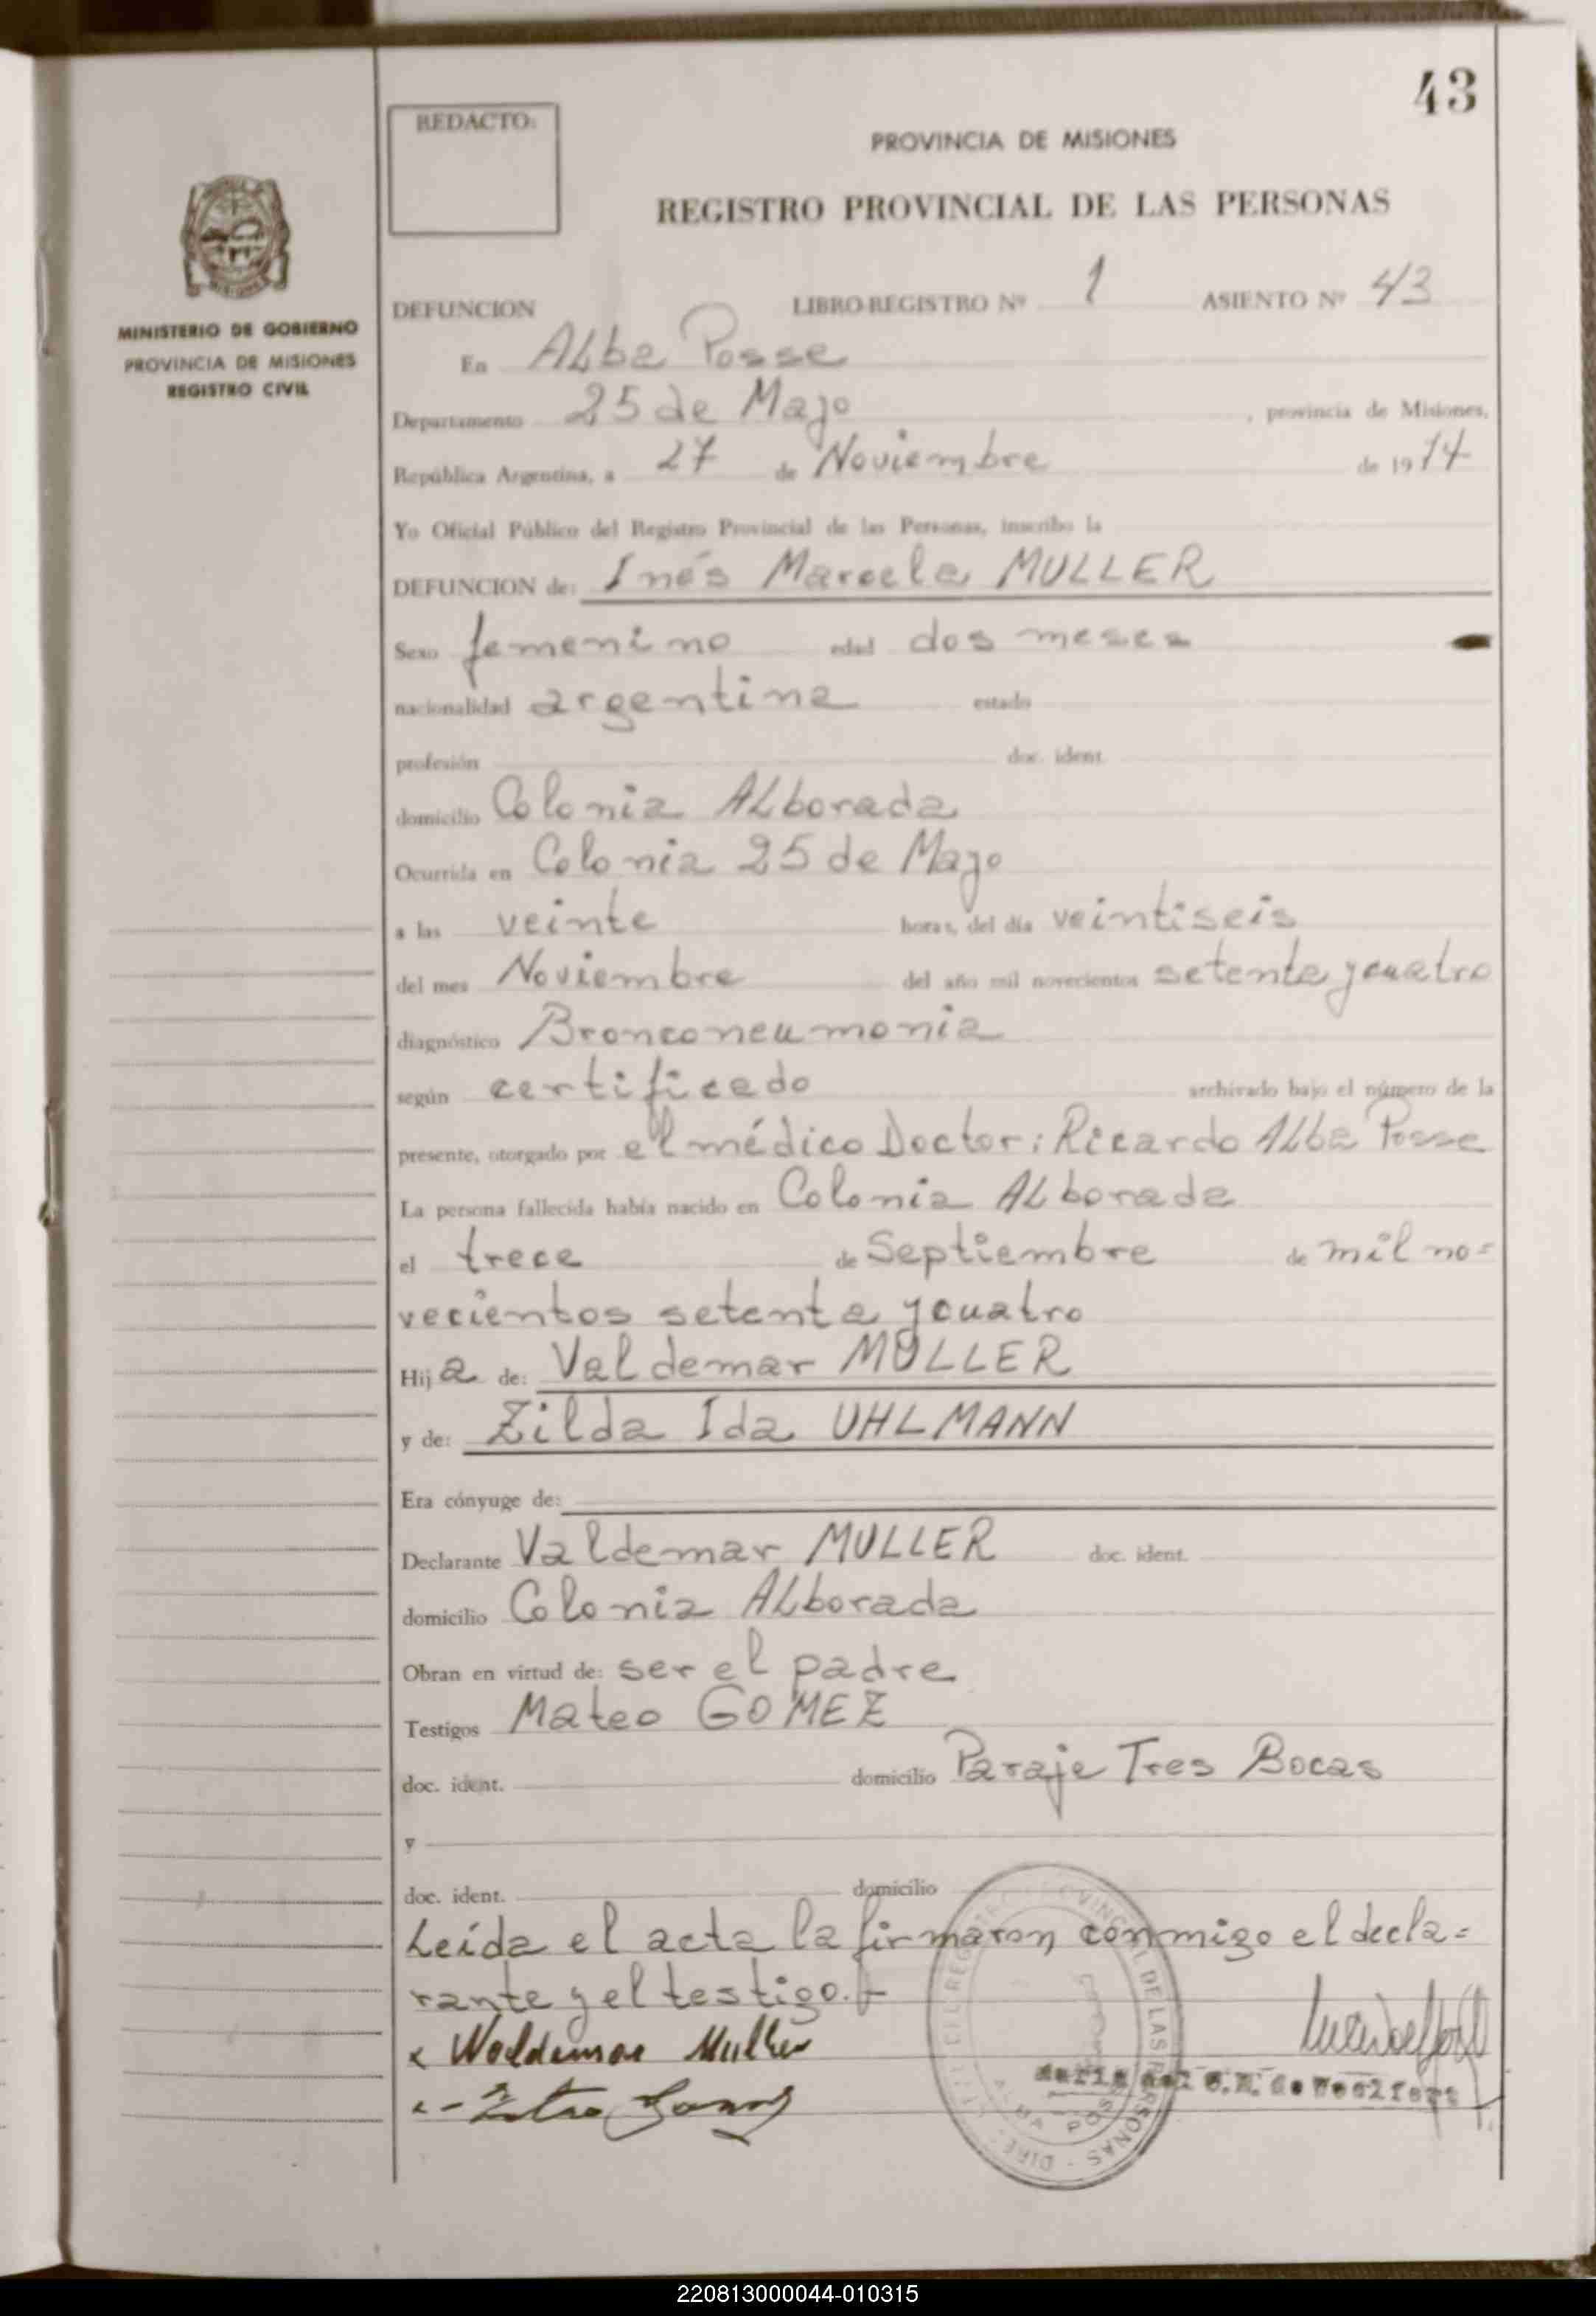 43
REDACTO:
PROVINCIA DE MISIONES
REGISTRO PROVINCIAL DE LAS PERSONAS
MINISTERIO DE GOBIERNO
PROVINCIA DE MISIONES
REGISTRO CIVIL
DEFUNCION LIBRO-REGISTRO Nº 1 ASIENTO Nº 43
En Alba Posse
Departamento 25 de Mayo, provincia de Misiones,
República Argentina, a 27 de Noviembre de 1974
Yo Oficial Público del Registro Provincial de las Personas, inscribo la
DEFUNCION de: Inés Marcela MULLER
Sexo femenino edad dos meses
nacionalidad argentina estado
profesión doc. ident.
domicilio Colonia ALborada
Ocurrida en Colonia 25 de Mayo
a las veinte horas, del día veintiseis
del mes Noviembre del año mil novecientos setenta y cuatro
diagnóstico Bronconeumonia
según certificado archivado bajo el número de la
presente, otorgado por el médico Doctor: Ricardo ALba Posse
La persona fallecida había nacido en Colonia ALborada
el trece de Septiembre de mil no=
vecientos setenta y cuatro
Hija de: Valdemar MULLER
y de: Zilda Ida UHLMANN
Era cónyuge de:
Declarante Valdemar MULLER doc. ident.
domicilio Colonia ALborada
Obran en virtud de: ser el padre
Testigos Mateo GOMEZ
doc. ident. domicilio Paraje Tres Bocas
y
doc. ident. domicilio
Leída el acta la firmaron conmigo el decla=
rante y el testigo.
x Woldemar Muller
220813000044-010315